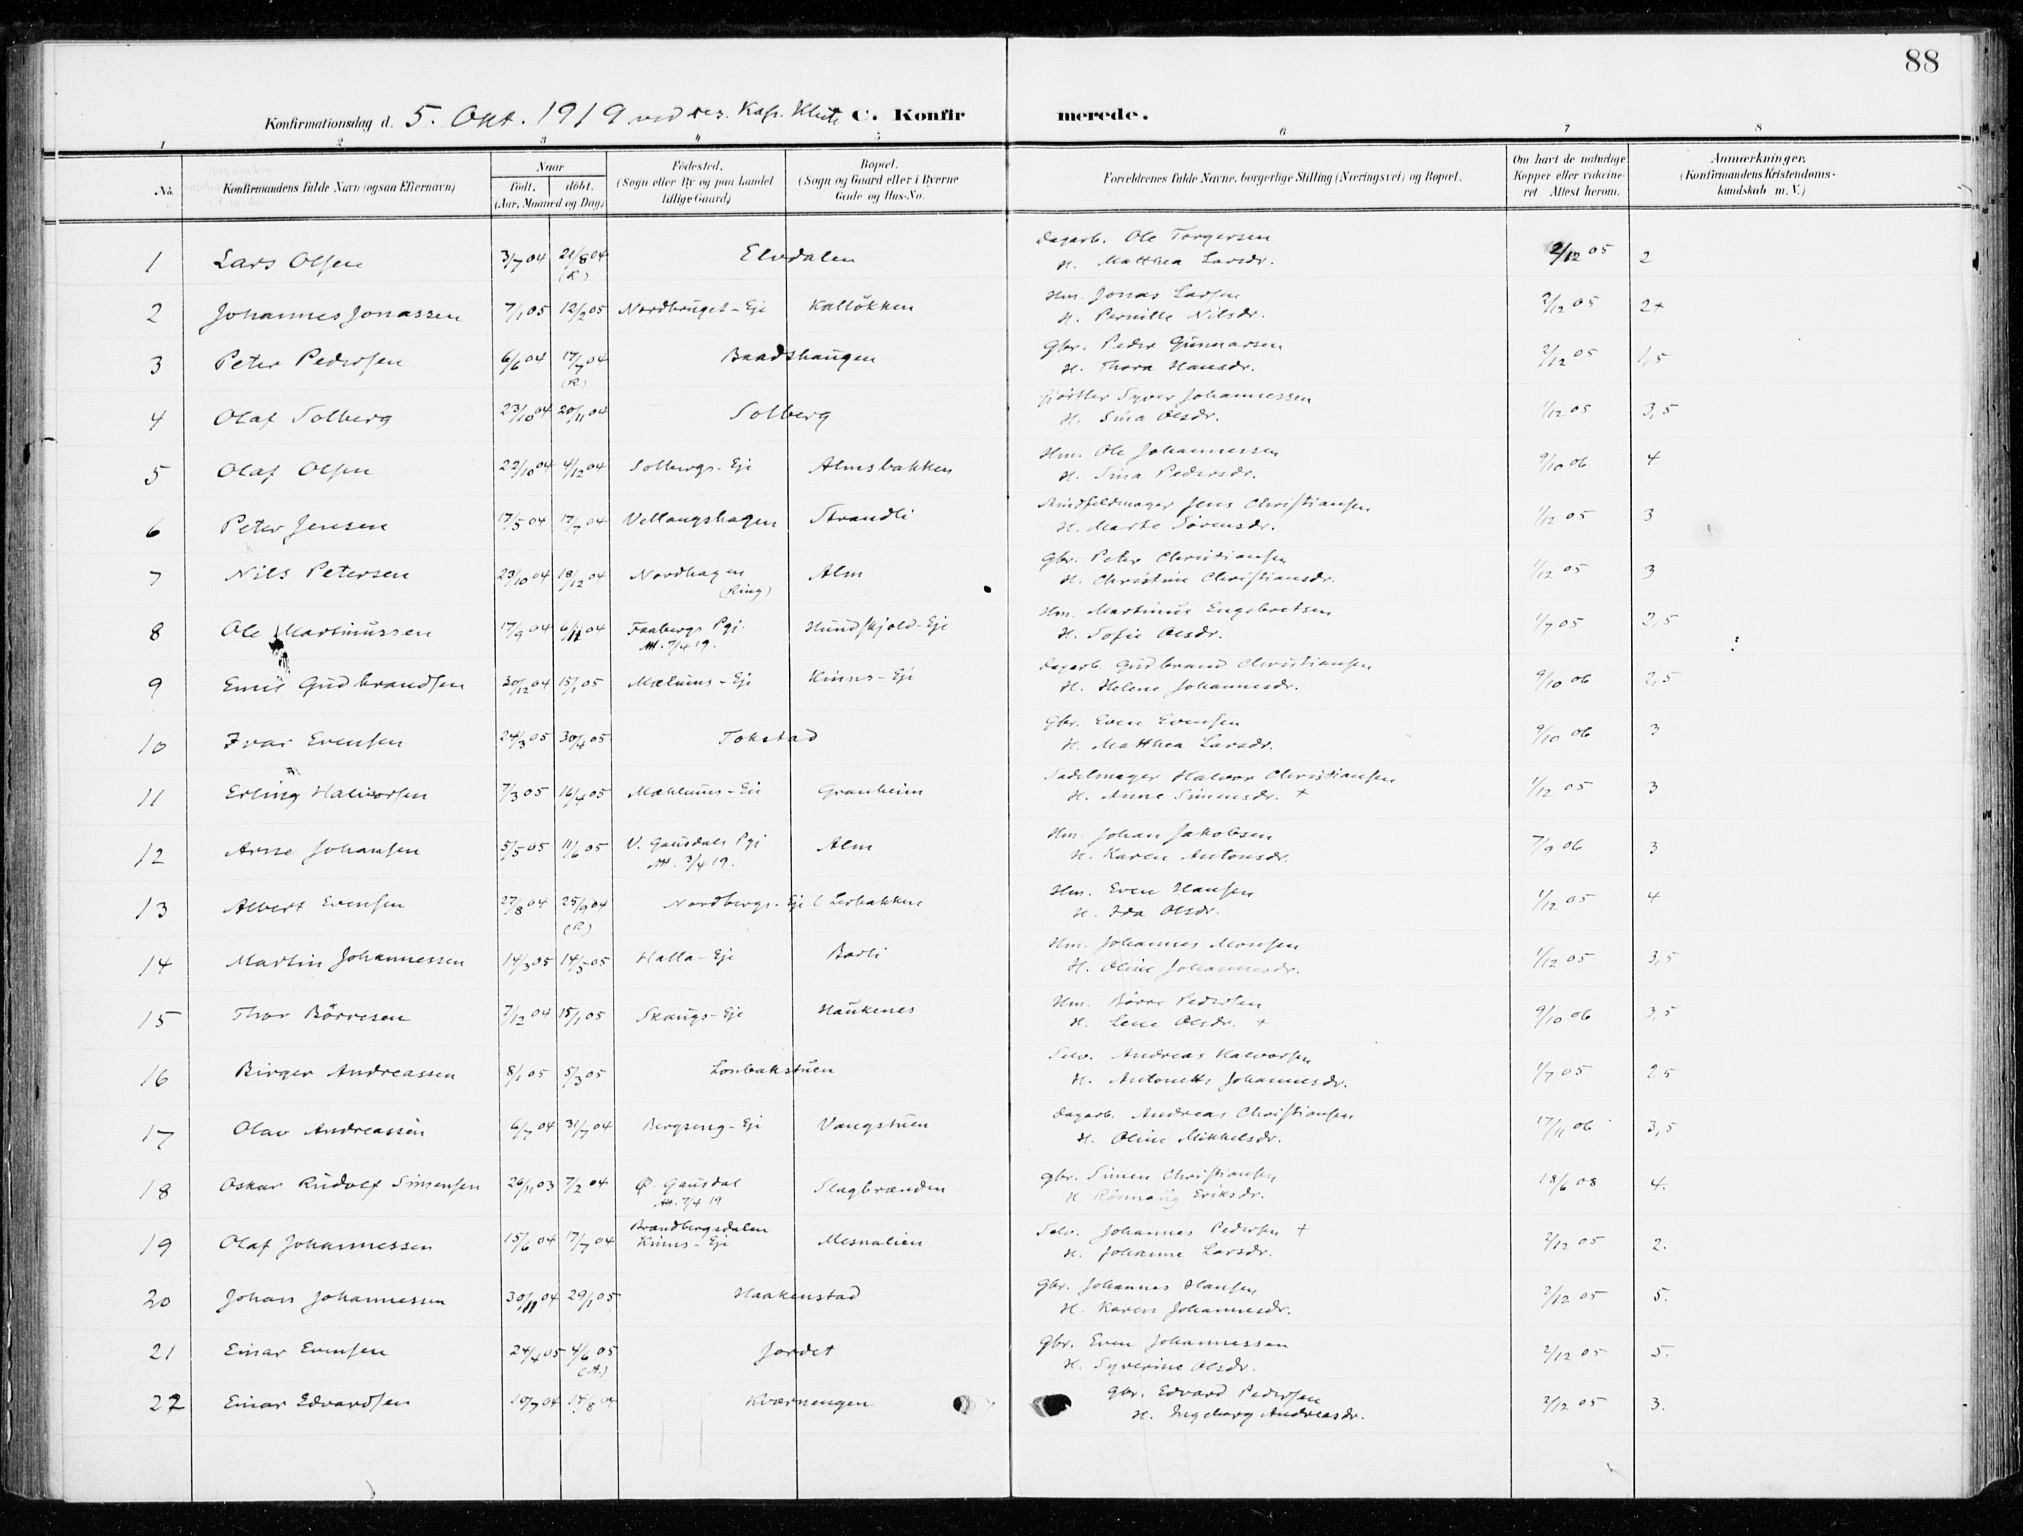 88
Konfirmationsdag d. 5. Okt. 1919 ved res. Kap. C. Konfirmerede.
1 2 3 4 5 6 7 8
No. Konfirmandens fulde Navn (ogsaa Efternavn) Naar født. døbt. (Aar, Maaned og Dag) Fødested. (Sogn eller By og paa Landet tillige Gaard) Bopæl. (Sogn og Gaard eller i Byerne Gade og Hus-No. Forældrenes fulde Navne, borgerlige Stilling (Næringsvei) og Bopæl. Om havt de naturlige Kopper eller vakcineret. Attest herom. Anmerkninger. (Konfirmandens Kristendomskundskab m. V.)
1 Lars Olsen 3/7 04 21/8 04 (K) Elvdalen Dagarb. Ole Torgersen H. Matthea Larsdr. 2/12 05 2
2 Johannes Jonassen 7/1 05 12/2 05 Nordbruget-Eje Kalløkken Hm. Jonas Larsen H. Pernille Nilsdr. 2/12 05 2+
3 Peter Pedersen 6/6 04 17/7 04 (R) Baadshaugen Gbr. Peder Gunnarsen H. Thora Hansdr. 2/12 05 1,5
4 Olaf Solberg 23/10 04 20/11 04 Solberg Gjørtler Syver Johannessen H. Sina Olsdr. 1/12 05 3,5
5 Olaf Olsen 22/10 04 4/12 04 Solbergs-Eje Almsbakken Hm. Ole Johannessen H. Sina Pedersdr. 9/10 06 4
6 Peter Jensen 17/5 04 17/7 04 Vellangshagen Strandli Jens Christiansen H. Marte Sørensdr. 1/12 05 3
7 Nils Petersen 29/10 04 18/12 04 Nordhagen (Ring) Alm Gbr. Peter Christiansen H. Christine Christiansdr. 1/12 05 3
8 Ole Martinussen 17/9 04 6/11 04 Faabergs Pgj. Att. 7/4 19. Hundskjold-Eje Hm. Martinus Engebretsen H. Sofie Olsdr. 1/7 05 2,5
9 Emil Gudbrandsen 30/12 04 15/1 05 Mælums-Eje Kinns-Eje Dagarb. Gudbrand Christiansen H. Helene Johannesdr. 9/10 06 2,5
10 Ivar Evensen 24/3 05 30/4 05 Tokstad Gbr. Even Evensen H. Matthea Larsdr. 9/10 06 3
11 Erling Halvorsen 7/3 05 16/4 05 Mæhlums-Eje Granheim Sadelmager Halvor Christiansen H. Anne Simensdr. + 1/12 05 3
12 Arne Johansen 5/5 05 11/6 05 V. Gausdals Pgj Att. 3/4 19. Alm Hm. Johan Jakobsen H. Karen Antonsdr. 7/9 06 3
13 Albert Evensen 27/8 04 25/9 04 (R) Nordbergs-Eje (Lerbakken Hm. Even Hansen H. Ida Olsdr. 1/12 05 4
14 Martin Johannessen 14/3 05 14/5 05 Halla-Eje Barli Hm. Johannes Monsen H. Oline Johannesdr. 1/12 05 3,5
15 Thor Börresen 7/12 04 15/1 05 Skaugs-Eje Haukenes Hm. Börre Pedersen H. Lene Olsdr. + 9/10 06 3,5
16 Birger Andreassen 8/1 05 5/3 05 Lonbakstuen Selv. Andreas Halvorsen H. Antonette Johannesdr. 1/7 05 2,5
17 Olav Andreassen 6/7 04 31/7 04 Bergseng-Eje Vangstuen Dagarb. Andreas Christiansen H. Oline Mikkelsdr. 17/11 06 3,5
18 Oskar Rudolf Simensen 26/11 03 7/2 04 Ø. Gausdal Att. 7/4 19 Slagbrænden Gbr. Simen Christiansen H Rönnaug Eriksdr. 18/6 08 4.
19 Olaf Johannessen 15/6 04 17/7 04 Brandbergsdalen Kinns-Eje Mesnalien Selv. Johannes Pedersen + H. Johanne Larsdr. 2/12 05 2.
20 Johan Johannessen 30/11 04 29/1 05 Haakenstad Gbr. Johannes Hansen H. Karen Johannesdr. 2/12 05 5.
21 Einar Evensen 24/4 05 4/6 05 (A) Jordet Gbr. Even Johannessen H. Syverine Olsdr. 2/12 05 5.
22 Einar Edvardsen 10/7 04 14/8 04 Kværnengen Gbr. Edvard Pedersen H. Ingeborg Andreasdr. 2/12 05 3.